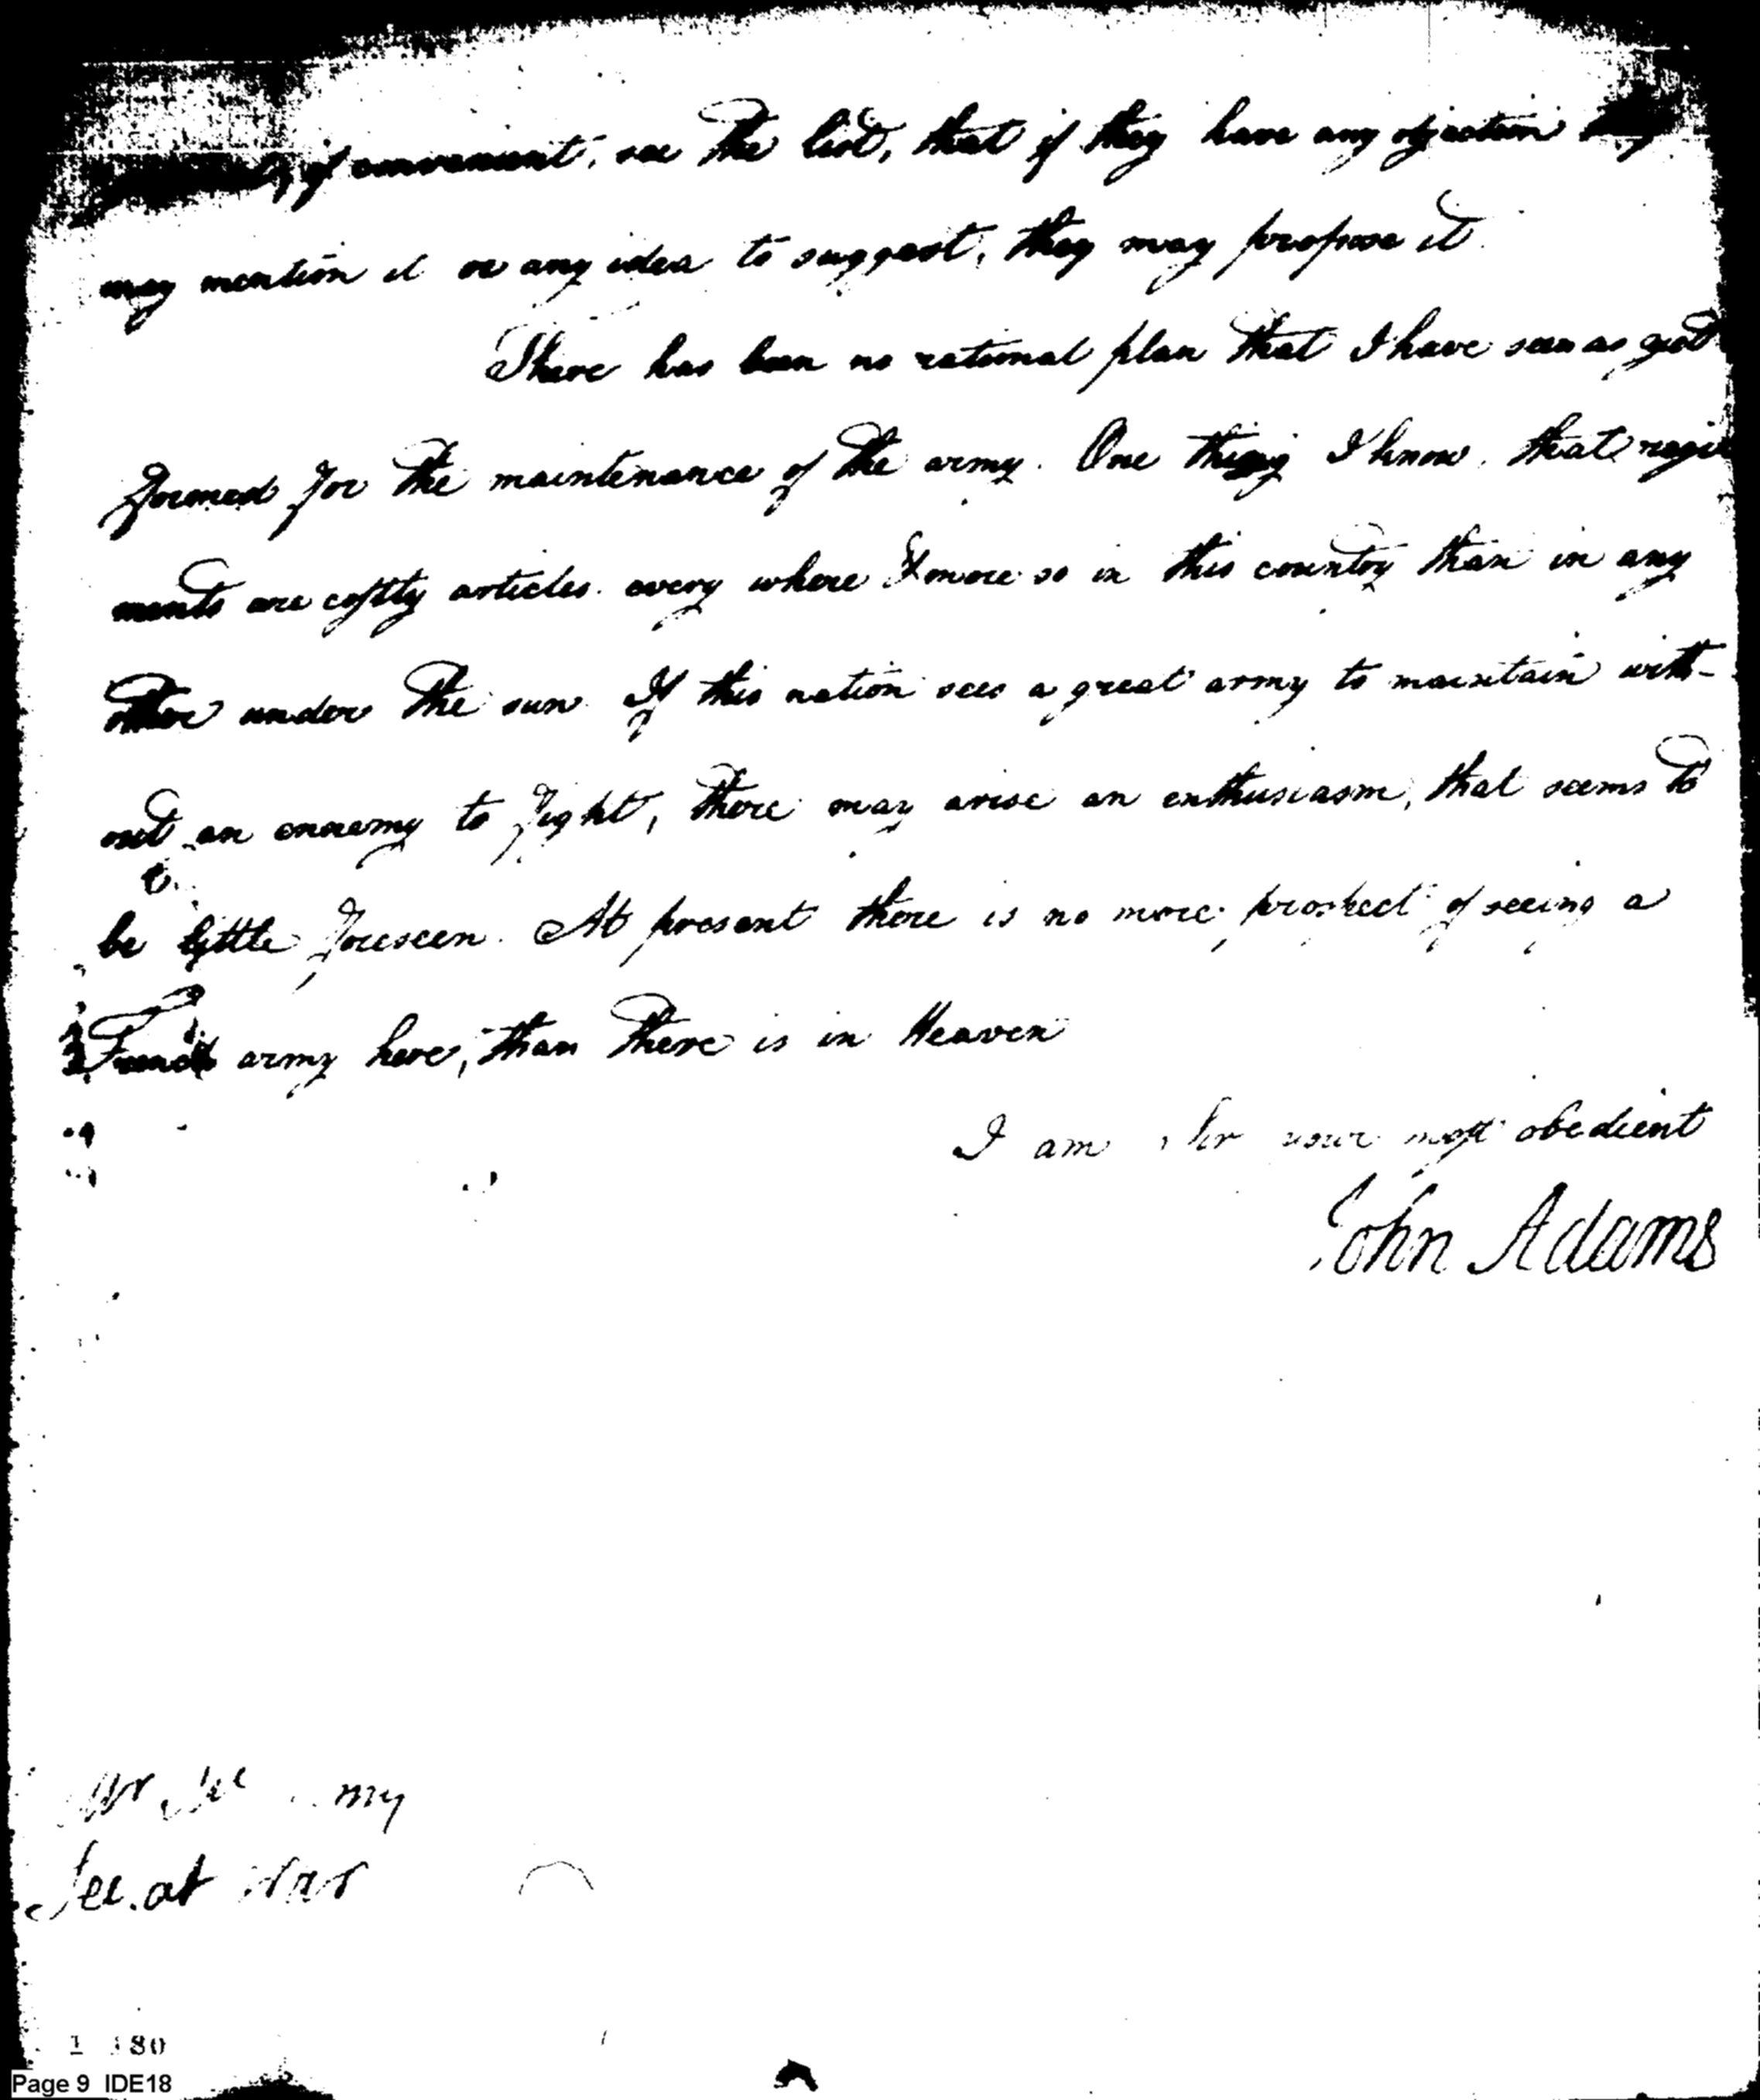 if convenient, see the list, that if they have any objection they
may mention it or any idea to suggest, they may propose it.
There has been no rational plan that I have seen as yet
formed for the maintenance of the army. One thing I know, that regi
ments are costly articles every where & more so in this country than in any
other under the sun. If this nation sees a great army to maintain with-
out an ennemy to fight, there may arise an enthusiasm, that seems to
be little foreseen. At present there is no more prospect of seeing a
French army here, than there is in Heaven
I am Sir your most obedient
John Adams
Mr
Sec. at War
Page 9 IDE18